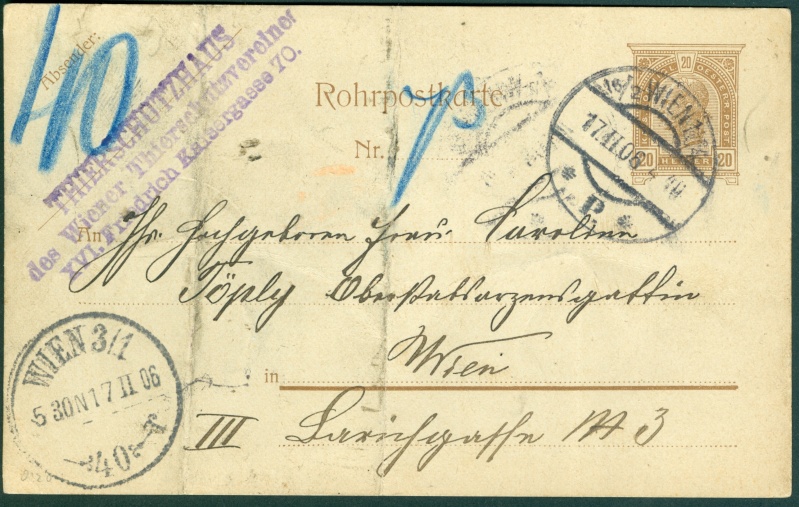 40
Absender:
THIERSCHUTZHAUS
des Wiener Thierschutzvereines
XVI. Friedrich Kaisergasse 70.
Rohrpostkarte.
Nr.
20
20 HELLER 20
WIEN
17.II.06
An Ihr Hochgeboren Frau Caroline
Töply Oberstabsarzensgattin
in Wien
III Barichgasse № 3
WIEN 3/1
5 30N 17 II 06
40